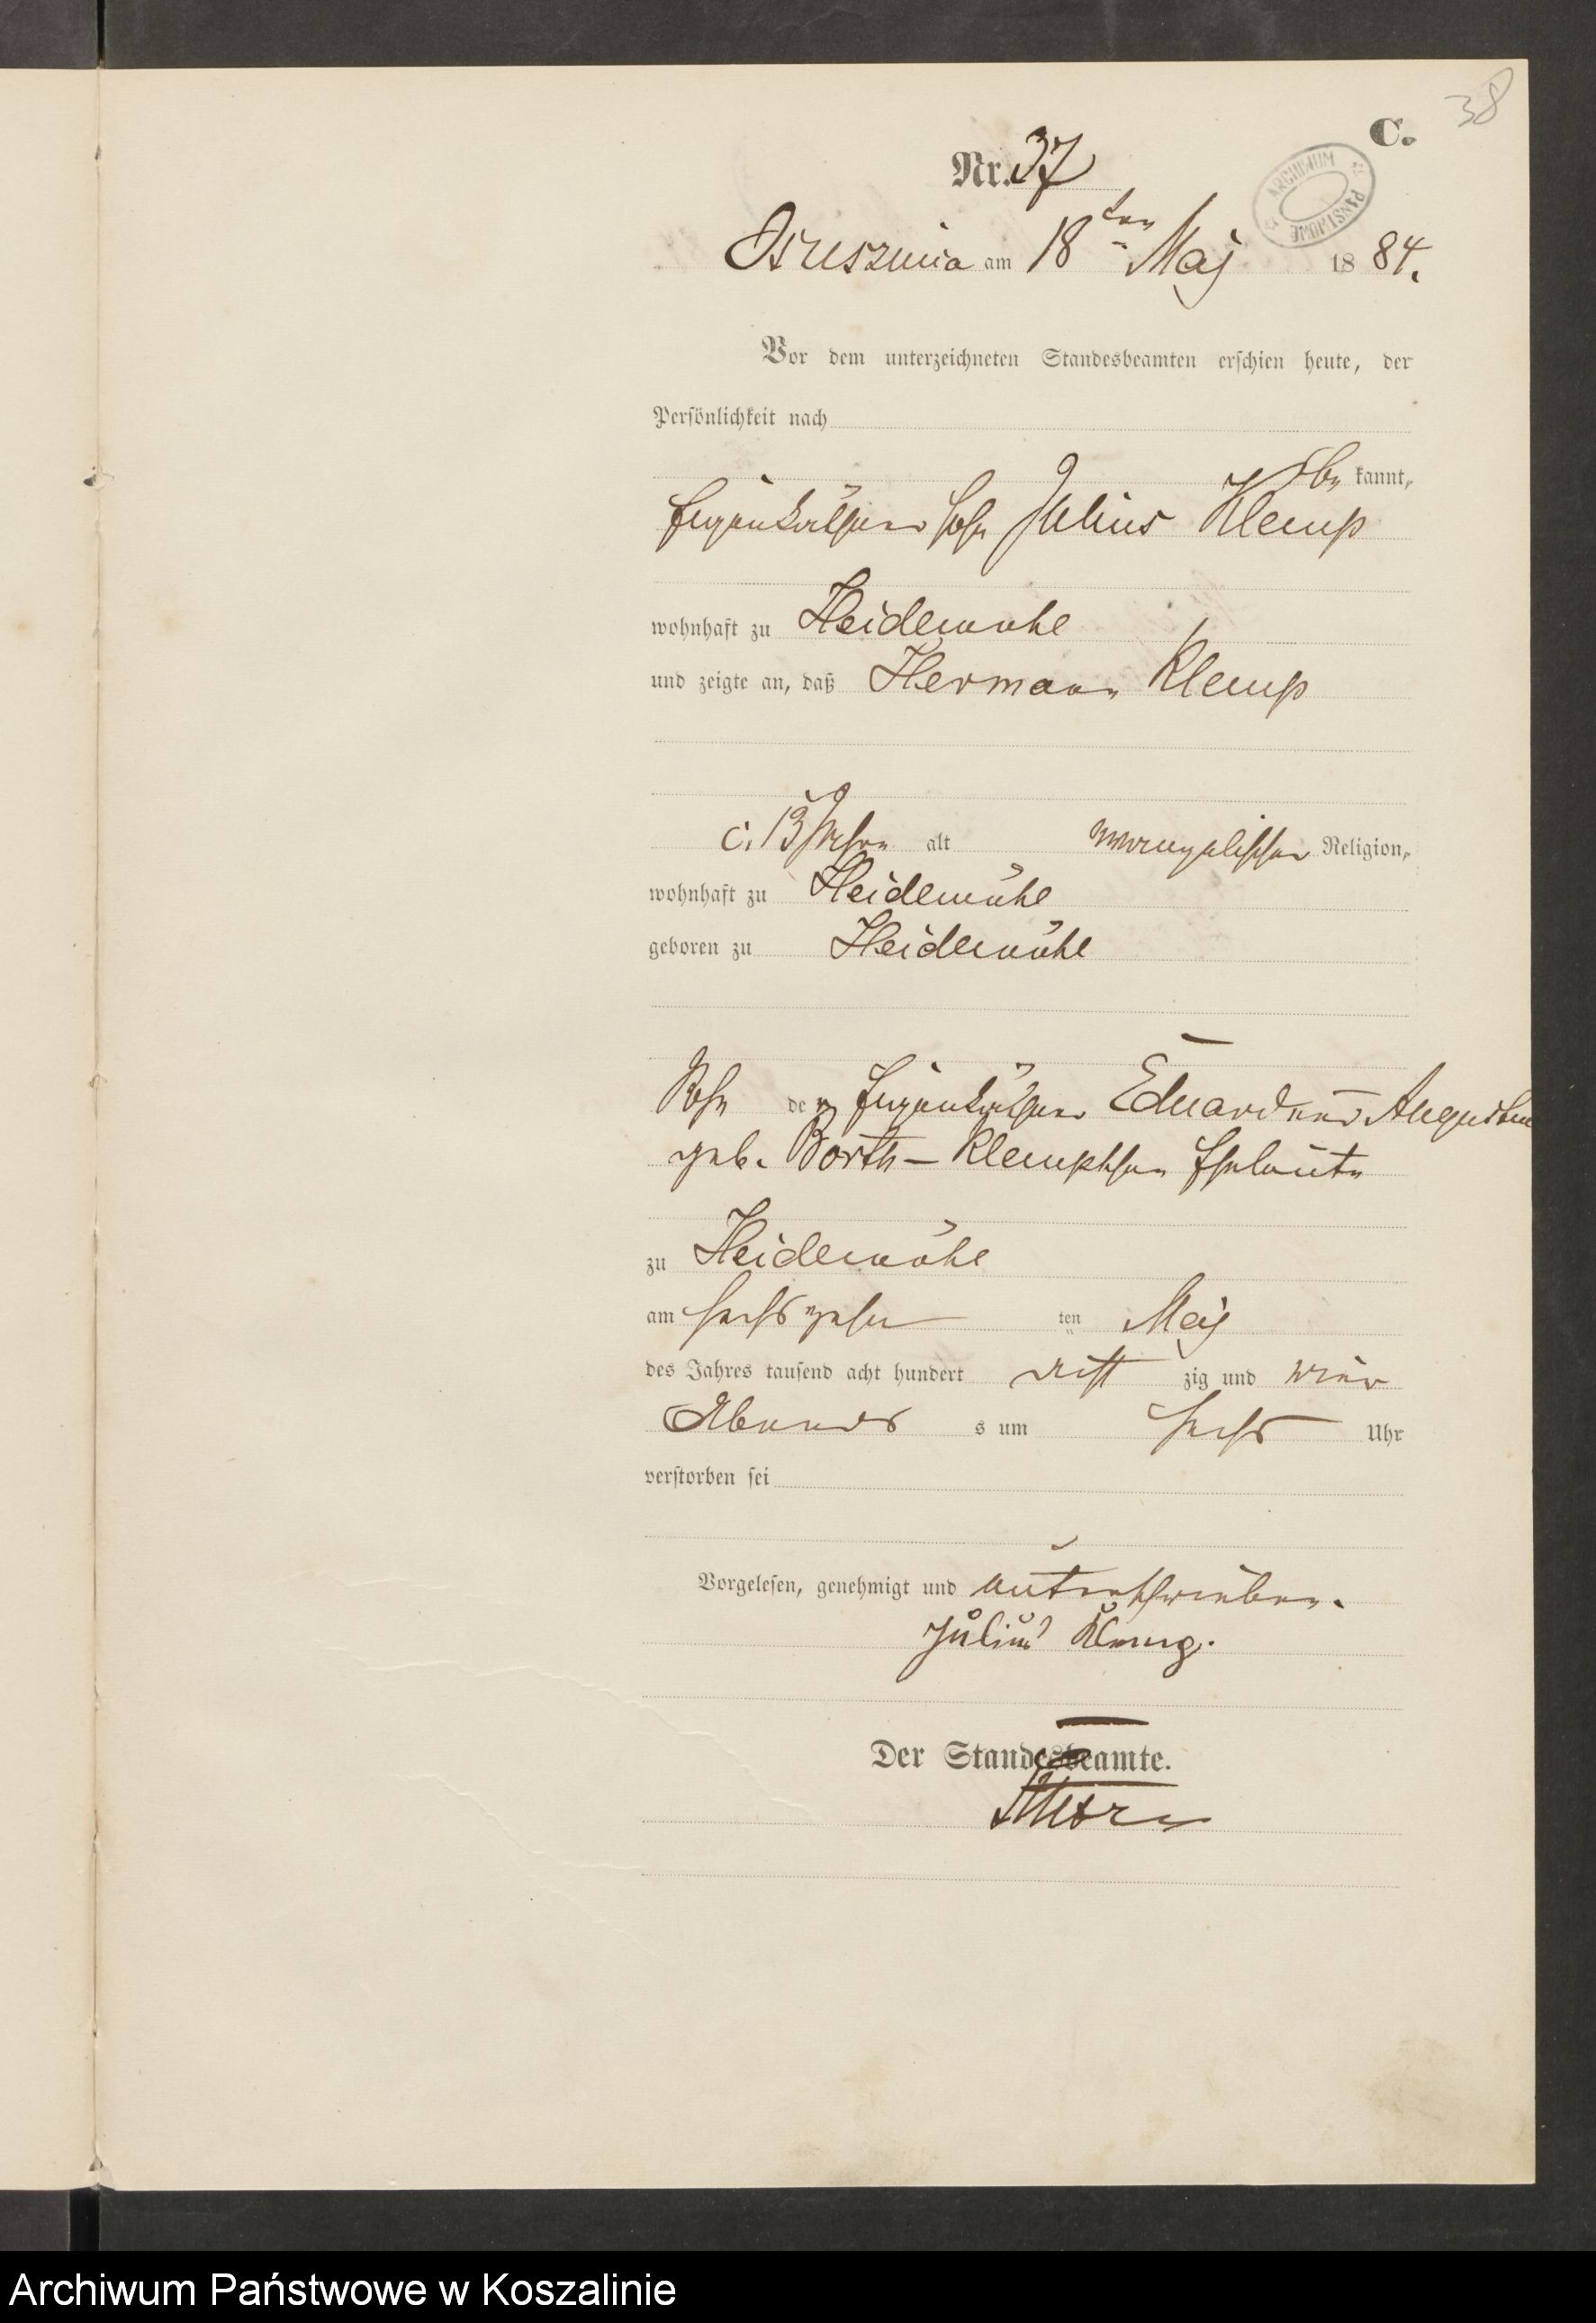 38
C.
ARCHIWUM PAŃSTWOWE
Nr. 37
Osuszniza am 18ten Maj 1884.
Vor dem unterzeichneten Standesbeamten erschien heute, der
Persönlichkeit nach
be kannt,
Eigenkäthner Sohn Julius Klemp
wohnhaft zu Heidemühl
und zeigte an, daß Hermann Klemp
c. 13 Jahre alt evangelischer Religion,
wohnhaft zu Heidemühl
geboren zu Heidemühl
Sohn der Eigenkäthner Eduard und Augustine
geb. Borth - Klempschen Eheleute
zu Heidemühl
am sechszehn ten Maj
des Jahres tausend acht hundert acht zig und vier
Abends s um sechs Uhr
verstorben sei
Vorgelesen, genehmigt und unterschrieben.
Julius Klemp.
Der Standesbeamte.
Archiwum Państwowe w Koszalinie